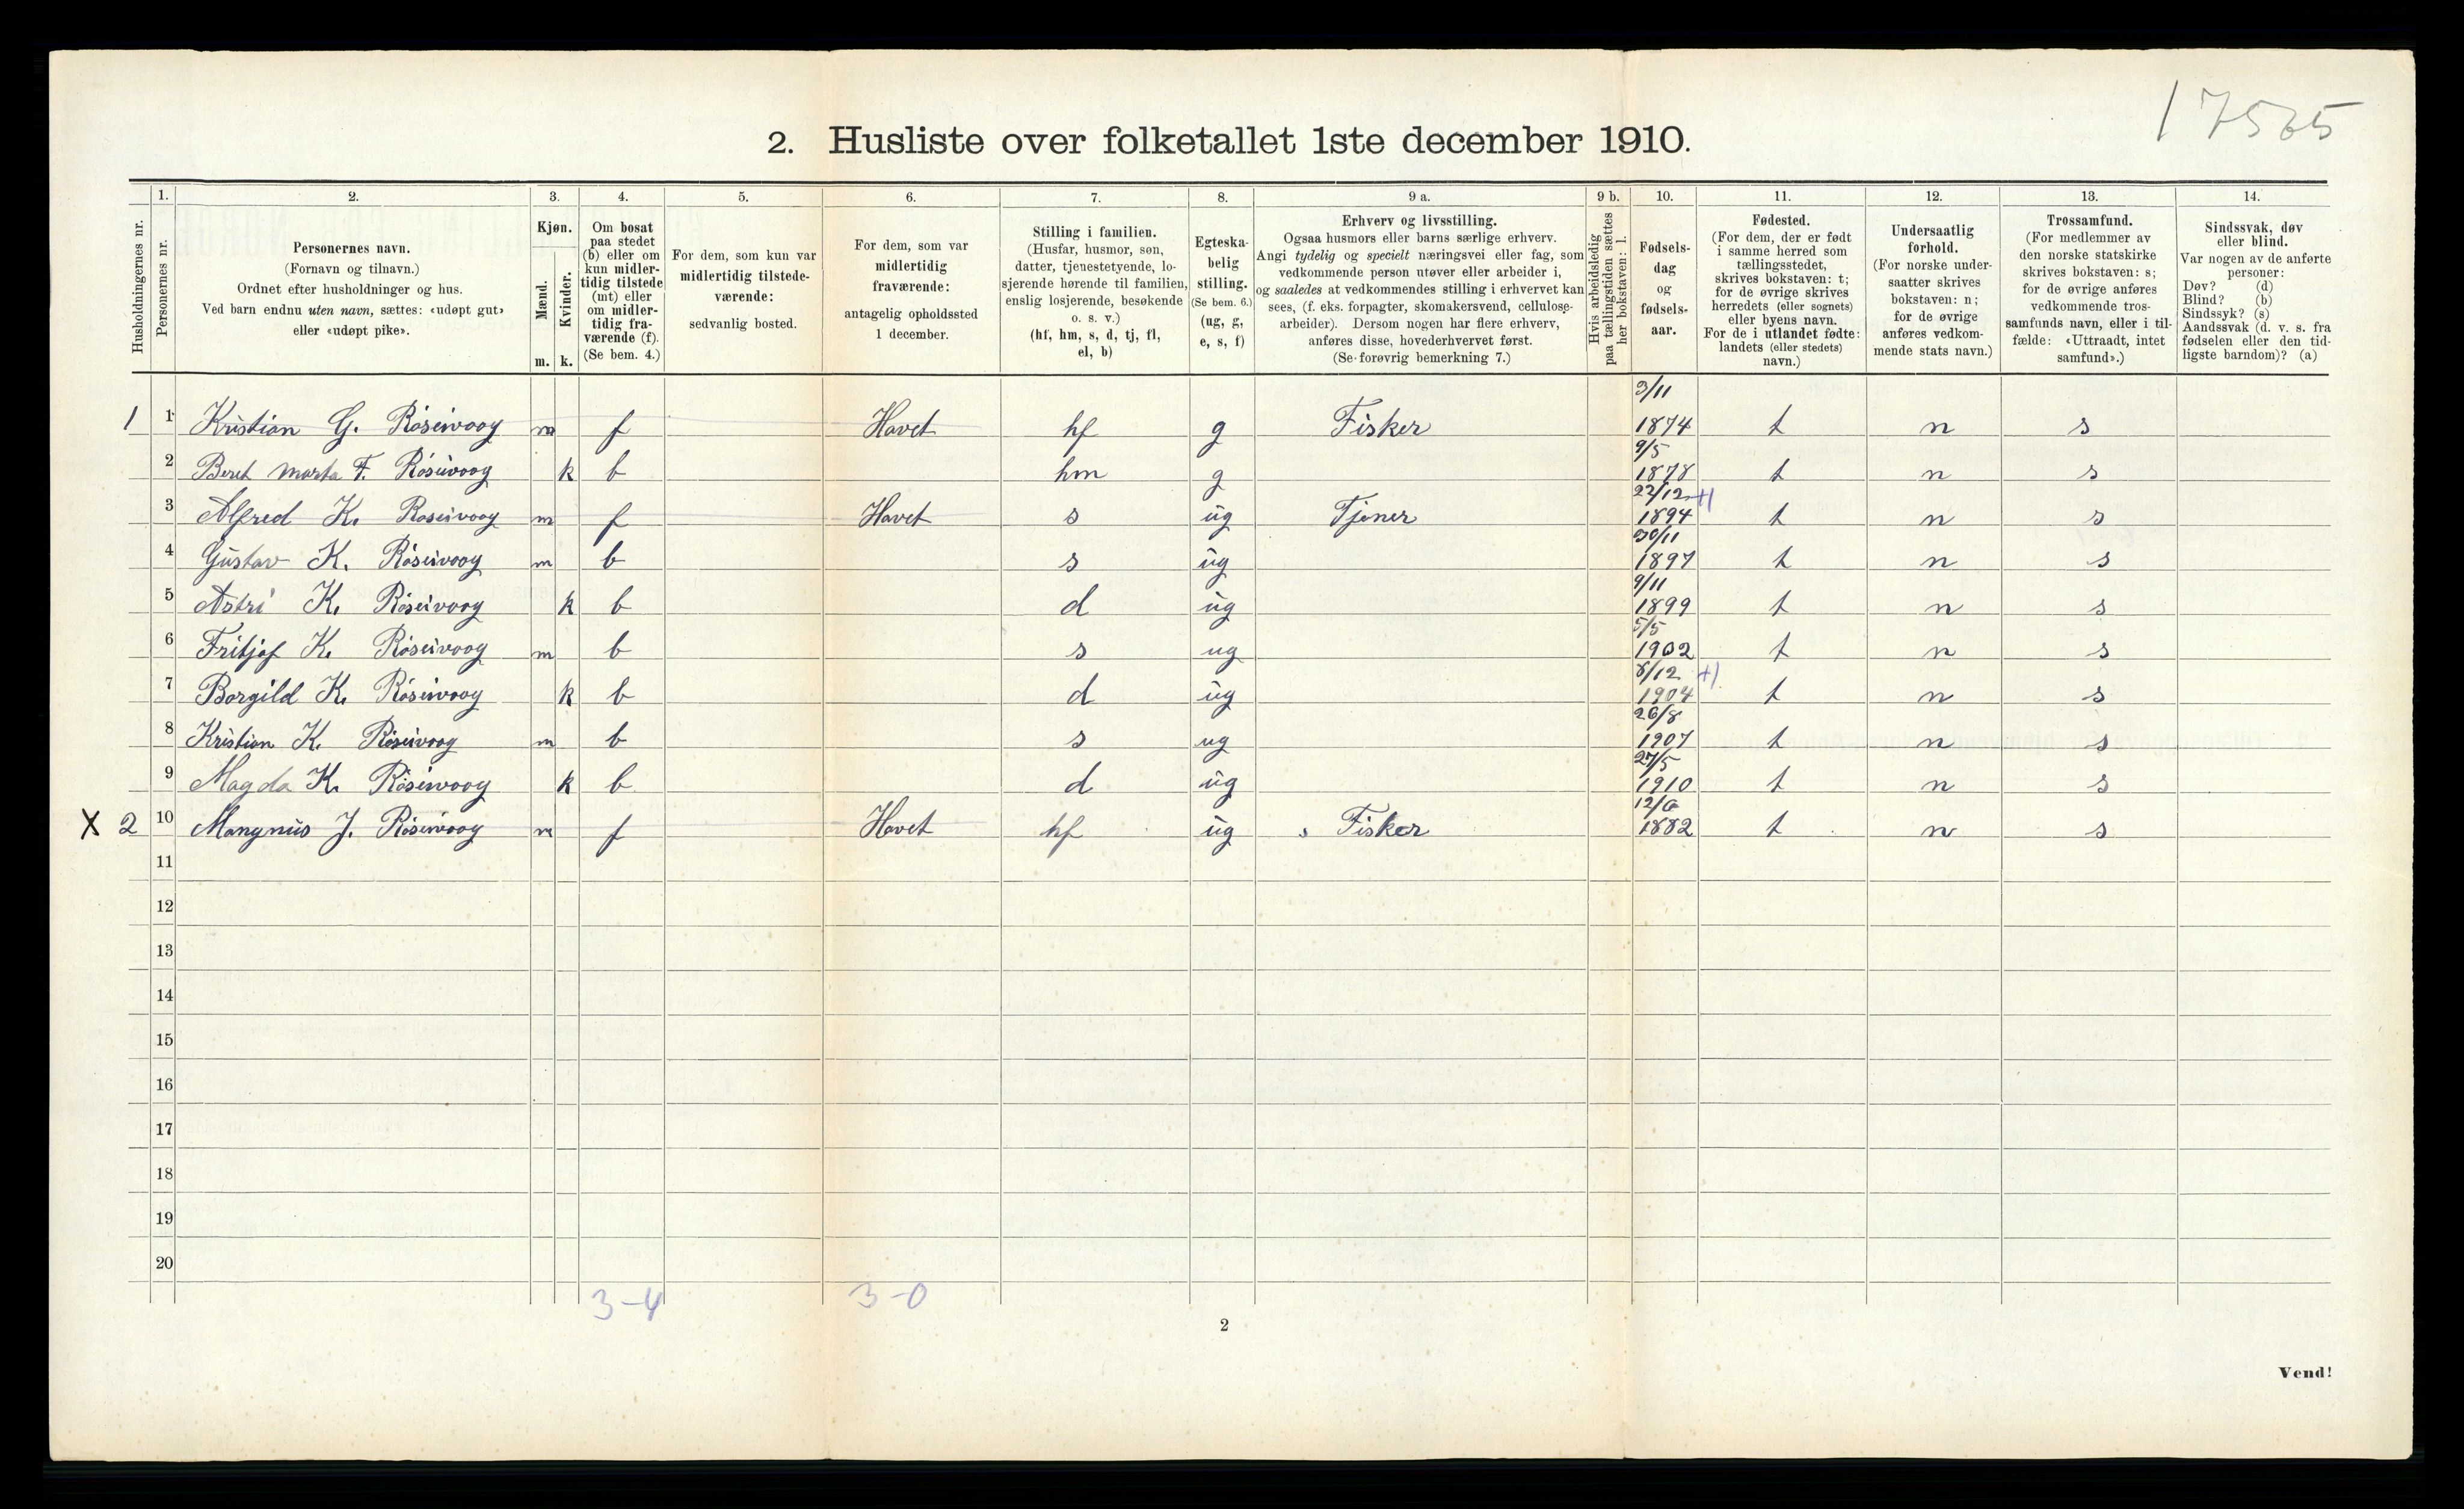 17565
2. Husliste over folketallet 1ste december 1910.
Husholdningernes nr.
1. Personernes nr.
2. Personernes navn. (Fornavn og tilnavn.) Ordnet efter husholdninger og hus. Ved barn endnu uten navn, sættes: «udøpt gut» eller «udøpt pike».
3. Kjøn. Mænd. m. Kvinder. k.
4. Om bosat paa stedet (b) eller om kun midlertidig tilstede (mt) eller om midlertidig fraværende (f). (Se bem. 4.)
5. For dem, som kun var midlertidig tilstedeværende: sedvanlig bosted.
6. For dem, som var midlertidig fraværende: antagelig opholdssted 1 december.
7. Stilling i familien. (Husfar, husmor, søn, datter, tjenestetyende, losjerende hørende til familien, enslig losjerende, besøkende o. s. v.) (hf, hm, s, d, tj, fl, el, b)
8. Egteskabelig stilling. (Se bem. 6.) (ug, g, e, s, f)
9 a. Erhverv og livsstilling. Ogsaa husmors eller barns særlige erhverv. Angi tydelig og specielt næringsvei eller fag, som vedkommende person utøver eller arbeider i, og saaledes at vedkommendes stilling i erhvervet kan sees, (f. eks. forpagter, skomakersvend, cellulosearbeider). Dersom nogen har flere erhverv, anføres disse, hovederhvervet først. (Se forøvrig bemerkning 7.)
9 b. Hvis arbeidsledig paa tællingstiden sættes her bokstaven: l.
10. Fødselsdag og fødselsaar.
11. Fødested. (For dem, der er født i samme herred som tællingsstedet, skrives bokstaven: t; for de øvrige skrives herredets (eller sognets) eller byens navn. For de i utlandet fødte: landets (eller stedets) navn.)
12. Undersaatlig forhold. (For norske undersaatter skrives bokstaven: n; for de øvrige anføres vedkommende stats navn.)
13. Trossamfund. (For medlemmer av den norske statskirke skrives bokstaven: s; for de øvrige anføres vedkommende trossamfunds navn, eller i tilfælde: «Uttraadt, intet samfund».)
14. Sindssvak, døv eller blind. Var nogen av de anførte personer: Døv? (d) Blind? (b) Sindssyk? (s) Aandssvak (d. v. s. fra fødselen eller den tidligste barndom)? (a)
1 1 Kristian G. Röseivoog m f Havet hf g Fisker 3/11 1874 t n s
2 Beret Marta F. Röseivoog k b hm g 9/5 1878 t n s
3 Alfred K. Roseivoog m f Havet s ug Tjener 22/12 1894 +) t n s
4 Gustav K. Röseivoog m b s ug 30/11 1897 t n s
5 Astri K. Röseivoog k b d ug 9/11 1899 t n s
6 Fritjof K. Röseivoog m b s ug 5/5 1902 t n s
7 Borgild K. Röseivoog k b d ug 8/12 1904 +) t n s
8 Kristian K. Röseivoog m b s ug 26/8 1907 t n s
9 Magda K. Röseivoog k b d ug 27/5 1910 t n s
X 2 10 Mangnus J. Röseivoog m f Havet hf ug s Fisker 1882 t n s
11
12
13
14
15
16
17
18
19
20
3-4 3-0
2
Vend!